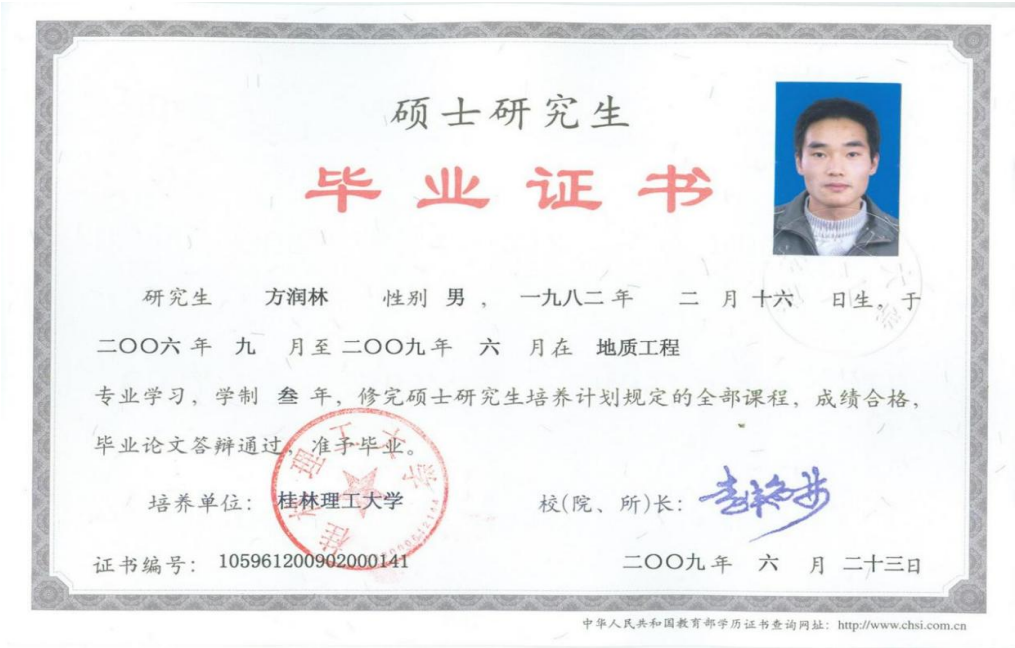 硕士研究生
毕业证书
研究生 方润林 性别 男 ， 一九八二 年 二 月 十六 日生，于
二〇〇六 年 九 月至 二〇〇九 年 六 月在 地质工程
专业学习，学制 叁 年，修完硕士研究生培养计划规定的全部课程，成绩合格，
毕业论文答辩通过，准予毕业。
培养单位： 桂林理工大学 校(院、所)长：
桂林理工大学
证书编号： 105961200902000141 二〇〇九 年 六 月 二十三 日
中华人民共和国教育部学历证书查询网址：http://www.chsi.com.cn